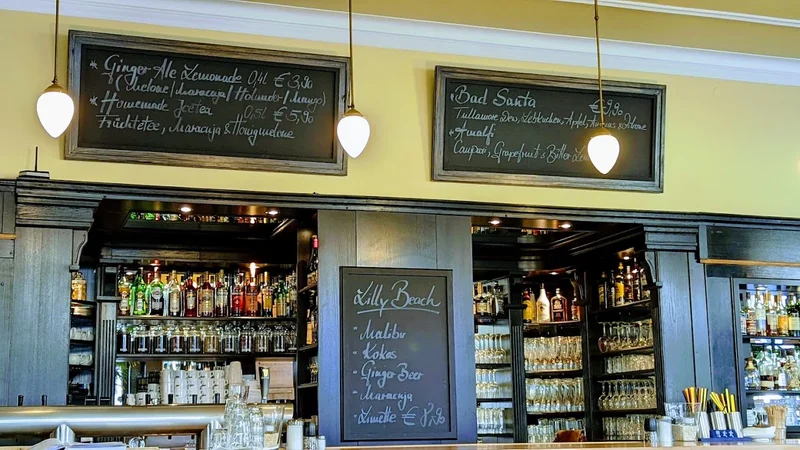 * Ginger Ale Lemonade 0,4l € 3,90
(Melone/Maracuja/Holunder/Mango)
* Homemade Icetea 0,5l € 5,90
Früchtetee, Maracuja & Honigmelone
* Bad Santa €9,90
Tullamore Dew, Lebkuchen, Apfel, & Zitrone
* Amalfi
Campari, Grapefruit & Bitter
Lilly Beach
* Malibu
* Kokos
* Ginger Beer
* Maracuja
* Limette €